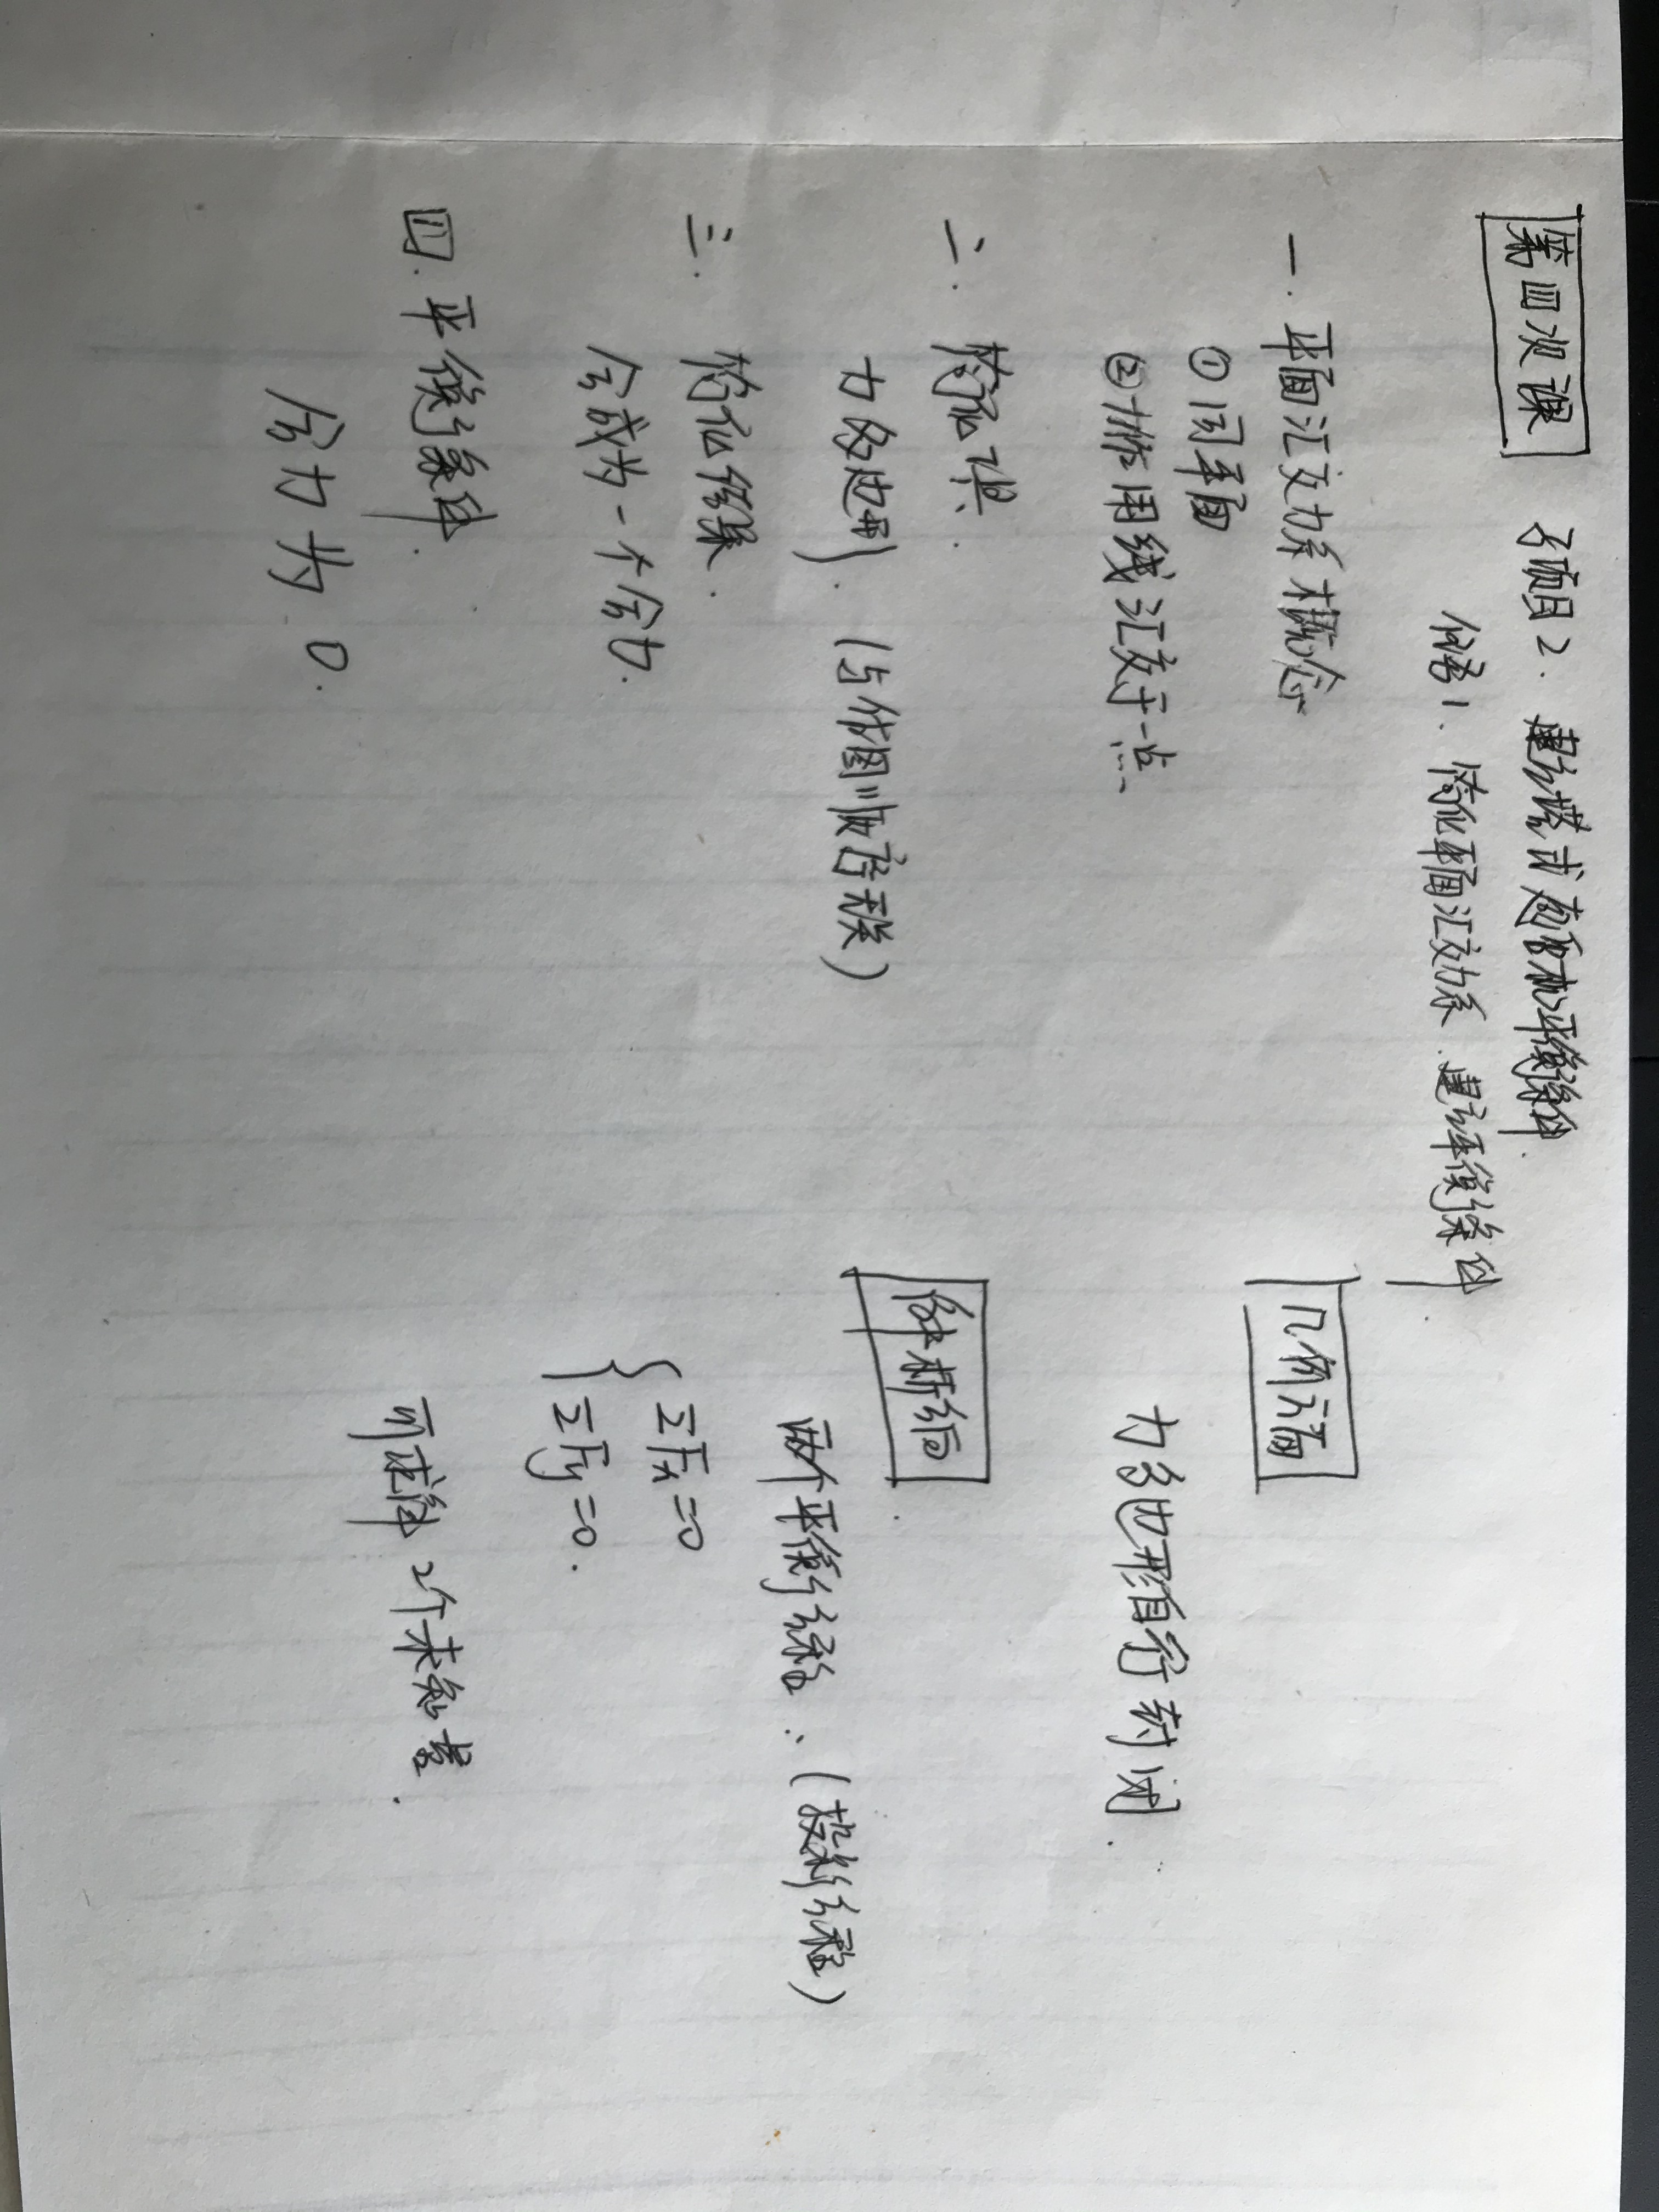 第四次课 子项目2. 建立塔式起重机平衡条件.
任务1. 简化平面汇交力系.建立平衡条件
一. 平面汇交力系概念
①同平面
②力作用线汇交于一点.
二. 简化过程.
力多边形. (与作图顺序无关)
三. 简化结果.
合成为一个合力.
四. 平衡条件.
合力为0.
几何方面
力多边形自行封闭.
解析方面.
两个平衡方程. (投影方程)
ΣFx=0
ΣFy=0.
可求解2个未知量.